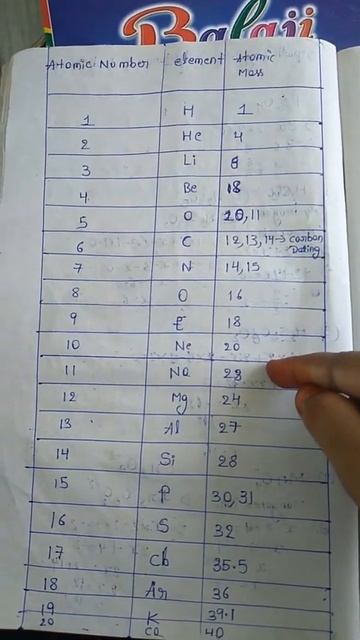 Balaji
Atomic Number element Atomic Mass
1 H 1
2 He 4
3 Li 8
4 Be 18
5 O 20,11
6 C 12,13,14→ carbon Dating
7 N 14,15
8 O 16
9 F 18
10 Ne 20
11 Na 23
12 Mg 24
13 Al 27
14 Si 28
15 P 30,31
16 S 32
17 Cl 35.5
18 Ar 36
19 K 39.1
20 Ca 40